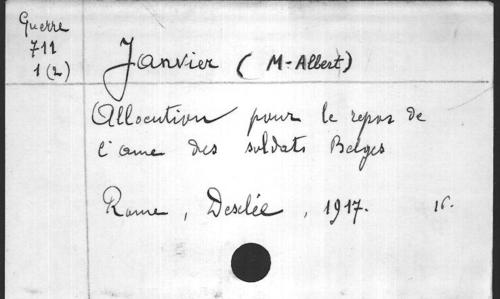 Guerre
711
1(2)
Janvier (M-Albert)
Allocution pour le repos de
l'ame des soldats Belges
Rome, Desclée, 1917. 16.